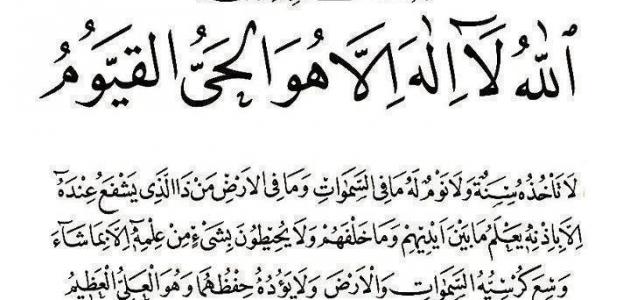 ٱللّٰهُ لَآ اِلٰهَ اِلَّا هُوَ الْحَيُّ الْقَيُّومُ
لَا تَأْخُذُهُ سِنَةٌ وَلَا نَوْمٌ لَهُ مَا فِى السَّمٰوَاتِ وَمَا فِى الْاَرْضِ مَنْ ذَا الَّذِى يَشْفَعُ عِنْدَهُٓ
اِلَّا بِاِذْنِهِ يَعْلَمُ مَا بَيْنَ اَيْدِيهِمْ وَمَا خَلْفَهُمْ وَلَا يُحِيطُونَ بِشَىْءٍ مِنْ عِلْمِهِٓ اِلَّا بِمَا شَآءَ
وَسِعَ كُرْسِيُّهُ السَّمٰوَاتِ وَالْاَرْضَ وَلَا يَؤُدُهُ حِفْظُهُمَا وَهُوَ الْعَلِىُّ الْعَظِيمُ